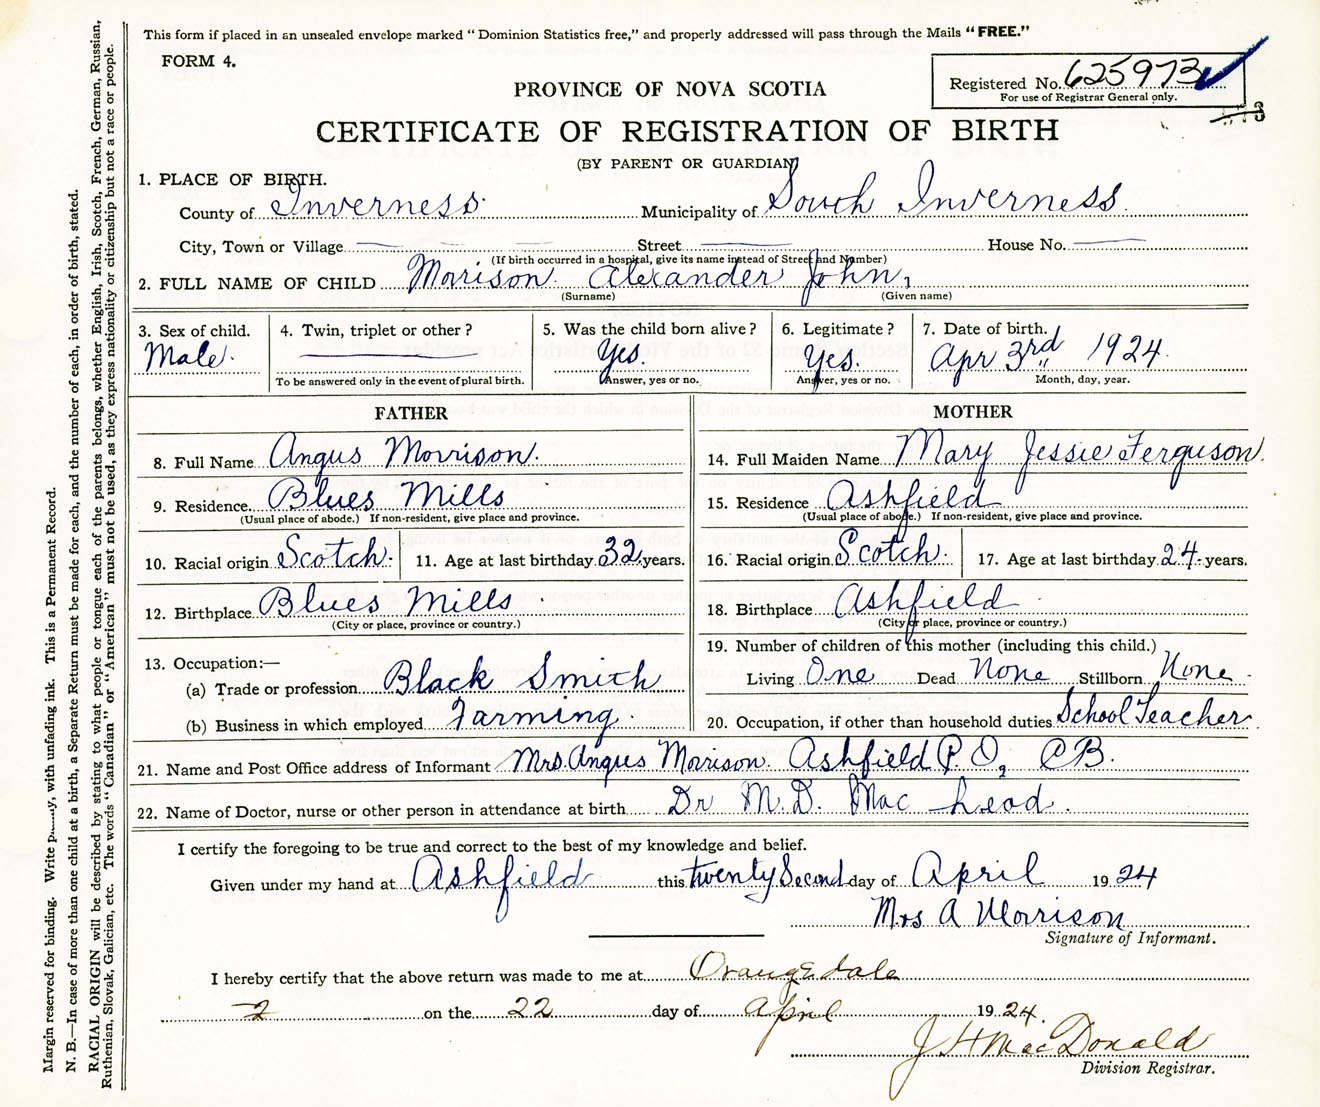 This form if placed in an unsealed envelope marked "Dominion Statistics free," and properly addressed will pass through the Mails "FREE."
FORM 4.
Registered No. 625973
For use of Registrar General only.
PROVINCE OF NOVA SCOTIA
CERTIFICATE OF REGISTRATION OF BIRTH
(BY PARENT OR GUARDIAN)
1. PLACE OF BIRTH.
County of Inverness Municipality of South Inverness
City, Town or Village Street House No.
(If birth occurred in a hospital, give its name instead of Street and Number)
2. FULL NAME OF CHILD Morison Alexander John,
(Surname) (Given name)
3. Sex of child. 4. Twin, triplet or other? 5. Was the child born alive? 6. Legitimate? 7. Date of birth.
Male. Yes. Yes. Apr 3rd 1924.
To be answered only in the event of plural birth. Answer, yes or no. Answer, yes or no. Month, day, year.
FATHER
8. Full Name Angus Morrison.
9. Residence Blues Mills
(Usual place of abode.) If non-resident, give place and province.
10. Racial origin Scotch. 11. Age at last birthday 32 years.
12. Birthplace Blues Mills
(City or place, province or country.)
13. Occupation:—
(a) Trade or profession Black Smith
(b) Business in which employed Farming.
MOTHER
14. Full Maiden Name Mary Jessie Ferguson.
15. Residence Ashfield
(Usual place of abode.) If non-resident, give place and province.
16. Racial origin Scotch. 17. Age at last birthday 24 years.
18. Birthplace Ashfield
(City or place, province or country.)
19. Number of children of this mother (including this child.)
Living One Dead None Stillborn None
20. Occupation, if other than household duties School Teacher
21. Name and Post Office address of Informant Mrs. Angus Morrison. Ashfield P.O, CB.
22. Name of Doctor, nurse or other person in attendance at birth Dr M.D. Mac Leod.
I certify the foregoing to be true and correct to the best of my knowledge and belief.
Given under my hand at Ashfield this twenty Second day of April 1924
Mrs A Morrison
Signature of Informant.
I hereby certify that the above return was made to me at Orangedale
2 on the 22 day of April 1924.
J H MacDonald
Division Registrar.
Margin reserved for binding. Write with unfading ink. This is a Permanent Record.
N. B.—In case of more than one child at a birth, a Separate Return must be made for each, and the number of each, in order of birth, stated.
RACIAL ORIGIN will be described by stating to what people or tongue each of the parents belongs, whether English, Irish, Scotch, French, German, Russian,
Ruthenian, Slovak, Galician, etc. The words "Canadian" or "American" must not be used, as they express nationality or citizenship but not a race or people.